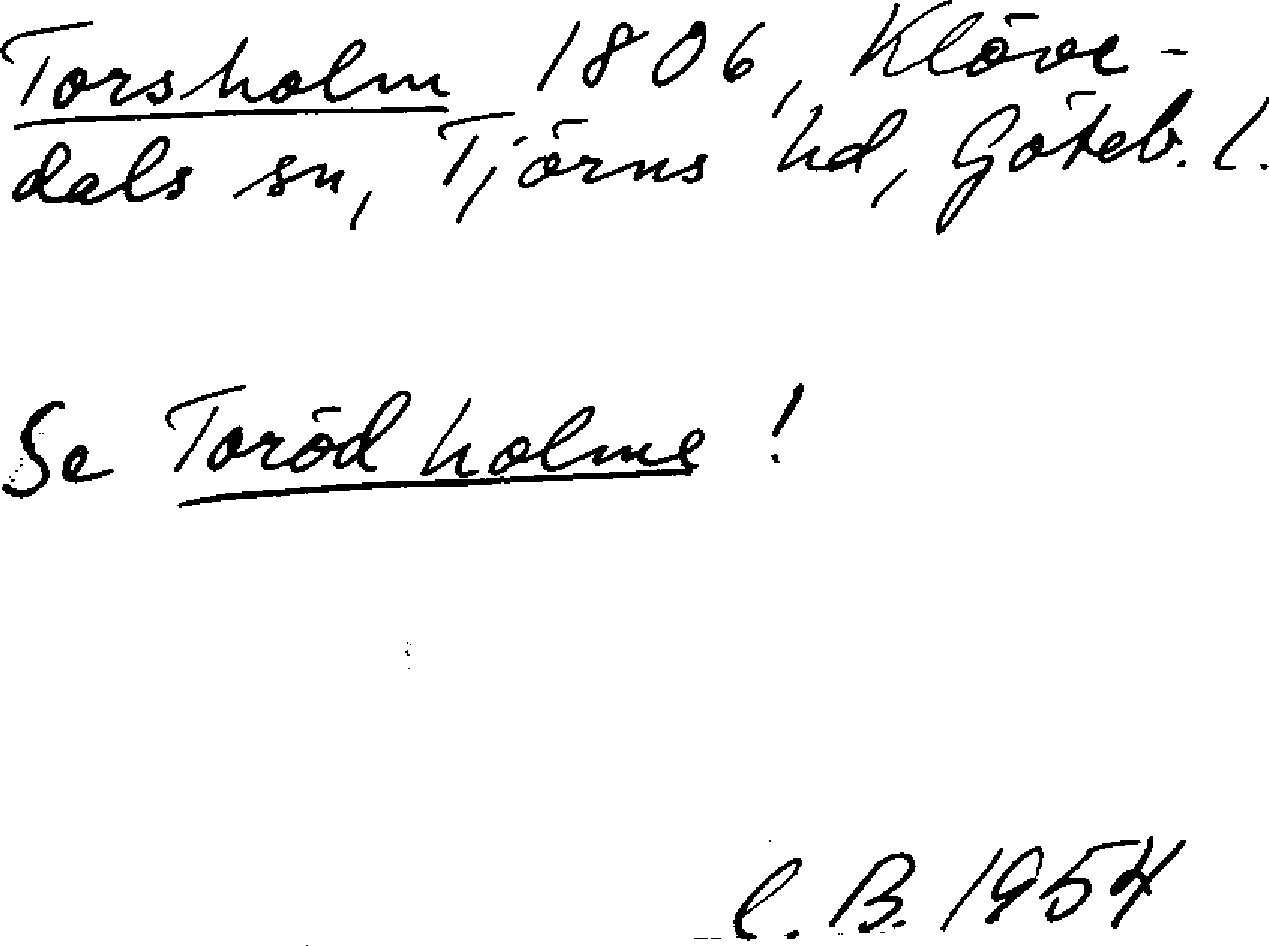 Torsholm 1806, Klöve-
dals sn, Tjörns hd, Göteb. l.
Se Toröd holme !
C. B. 1954